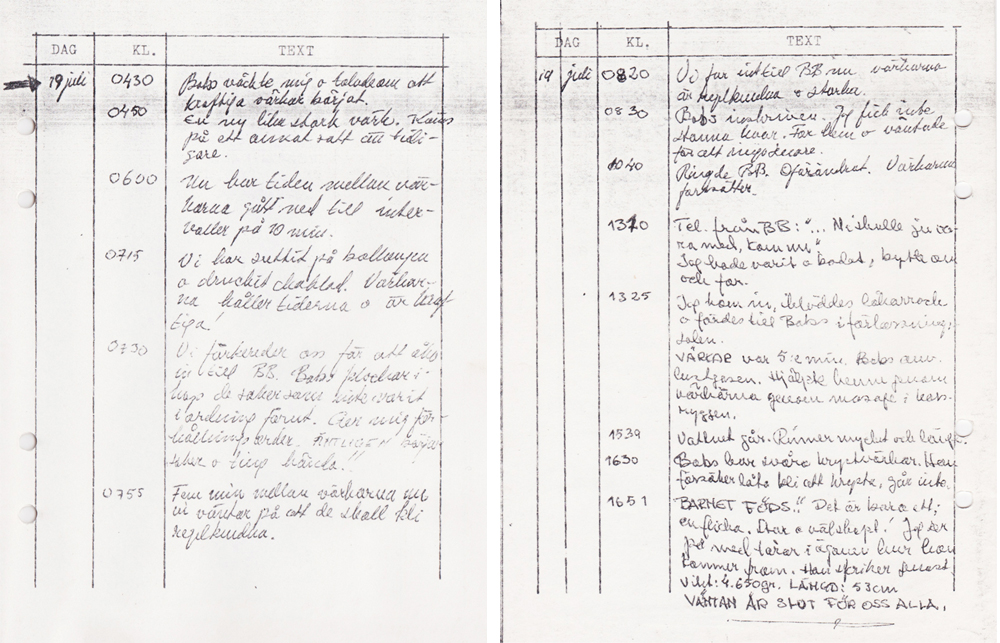 DAG KL. TEXT
19 juli 0430 Babs väckte mig o talade om att
kraftiga värkar börjat.
0450 En ny lika stark värk. Känns
på ett annat sätt än tidi-
gare.
0600 Nu har tiden mellan vär-
karna gått ned till inter-
valler på 10 min.
0715 Vi har suttit på balkongen
o druckit choklad. Värkar-
na håller tiderna o är kraf
tiga!
0730 Vi förbereder oss för att åka
in till BB. Babs plockar i-
hop de saker som inte varit
i ordning förut. Ger mig för-
hållningsorder. ÄNTLIGEN börjar
saker o ting hända!!
0755 Fem min mellan värkarna nu
vi väntar på att de skall bli
regelbundna.
DAG KL. TEXT
19 juli 0820 Vi for in till BB nu värkarna
är regelbundna o starka.
0830 Babs inskriven. Jag fick inte
stanna kvar. For hem o väntade
för att ringa senare.
1040 Ringde BB. Oförändrat. Värkarna
fortsätter.
1320 Tel. från BB: "... Ni skulle ju va-
ra med, kom nu"
Jag hade varit o badat, bytte om
och for.
1325 Jag kom in, ikläddes läkarrock
o fördes till Babs i förlossnings
salen.
VÄRKAR var 5:e min. Babs anv.
lustgasen. Hjälpte henne genom
värkarna genom massage i kors-
ryggen.
1539 Vattnet går. Rinner mycket och länge.
1630 Babs har svåra krystvärkar. Hon
försöker låta bli att krysta, går inte.
1651 BARNET FÖDS!! Det är bara ett;
en flicka. Stor o välskapt! Jag ser
på med tårar i ögonen hur hon
kommer fram. Hon skriker genast
Vikt: 4.650gr. LÄNGD: 53cm
VÄNTAN ÄR SLUT FÖR OSS ALLA.